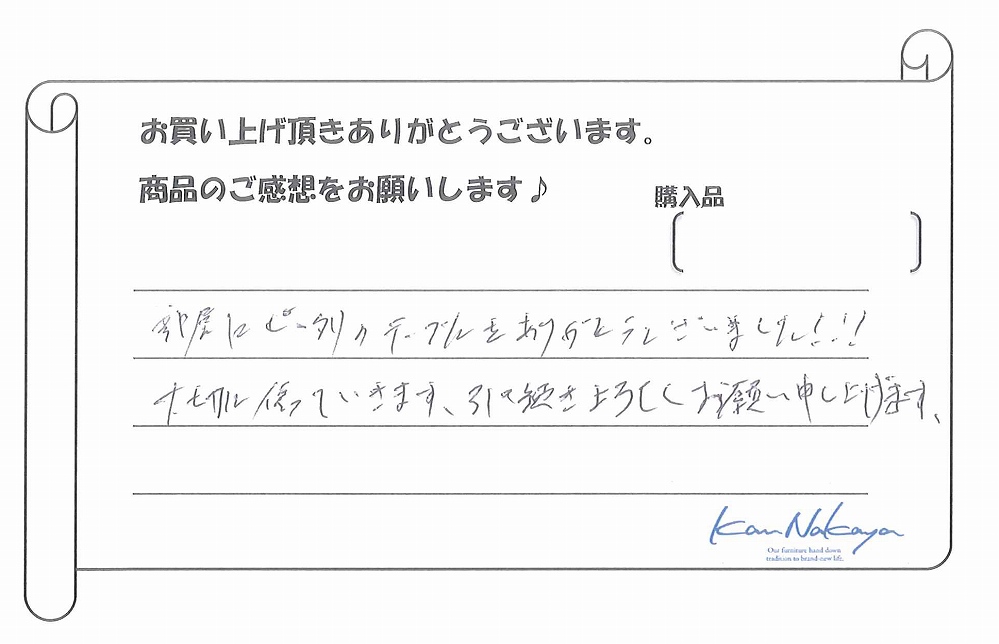 お買い上げ頂きありがとうございます。
商品のご感想をお願いします♪
購入品
部屋にピッタリのテーブルをありがとうございました!!!
大切に使っていきます、引き続きよろしくお願い申し上げます、
Kan Nakaya
Our furniture hand down
tradition to brand-new life.